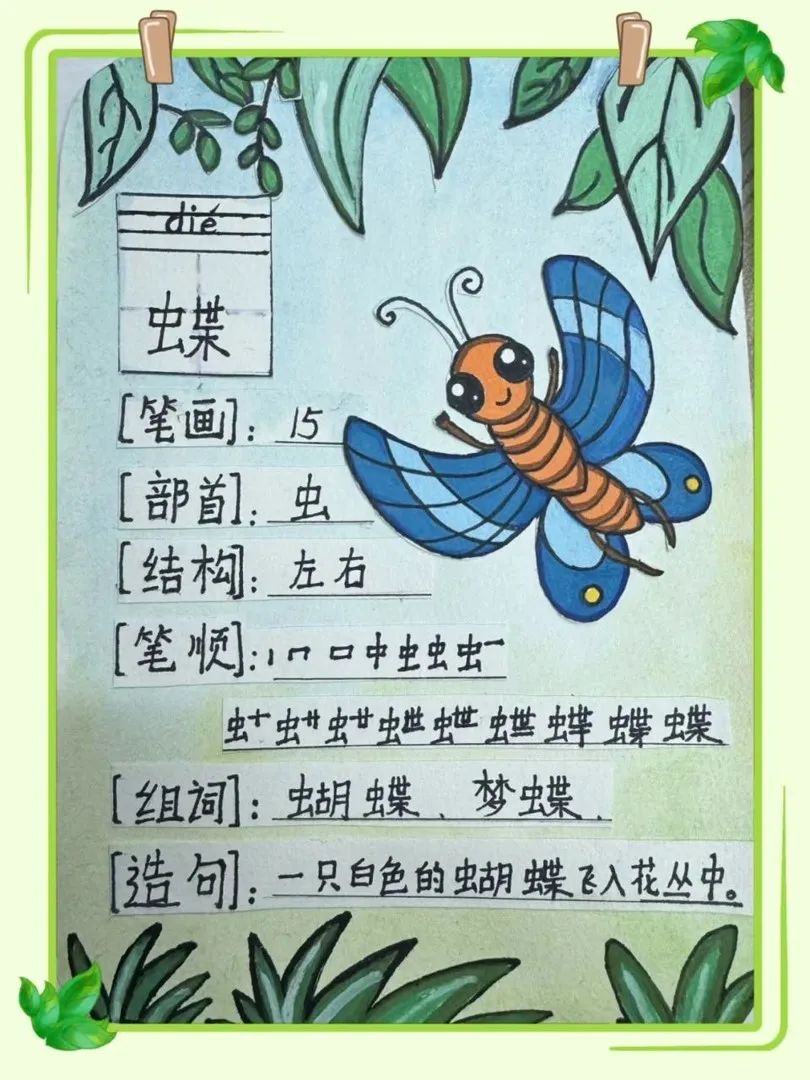 dié
蝶
[笔画]：15
[部首]：虫
[结构]：左右
[笔顺]：丨 冂 口 中 虫 虫 虫一
虫十 虫廾 虫廿 虫世 虫世 蝶 蝶
[组词]：蝴蝶、梦蝶.
[造句]：一只白色的蝴蝶飞入花丛中。